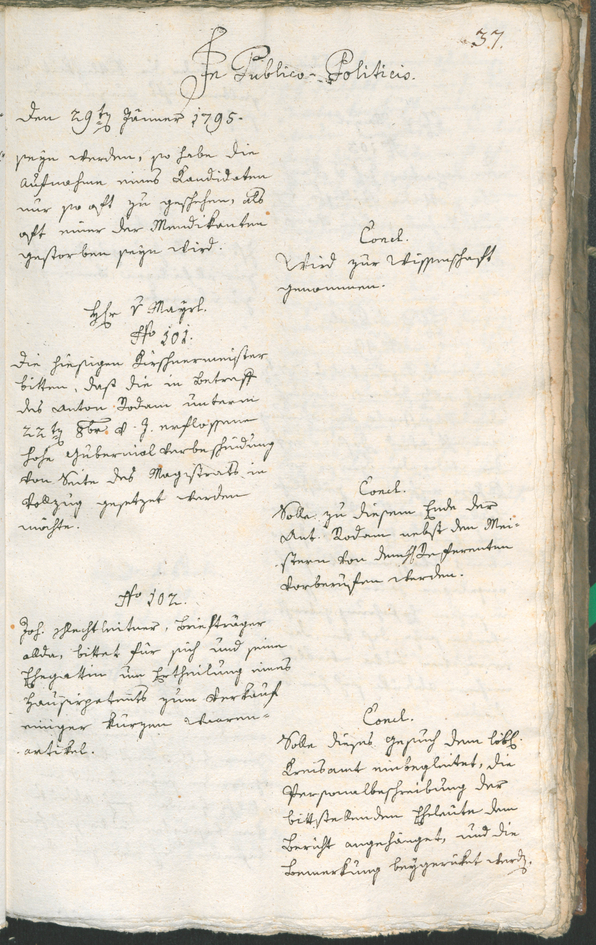 37.
In Publico-Politicis.
Den 29ten Jänner 1795.
seyn werden, so habe die
Aufnahme eines Kandidaten
nur so oft zu geschehen, als
oft einer der Mendikanten
gestorben seyn wird.
Concl.
Wird zur Wissenschaft
genommen.
Hhr v Mayrl.
No 101.
Die hiesigen Kirschnermeister
bitten, daß die in Betreff
des Anton Rodam unterm
22ten 8br v. J. erflossene
hohe Gubernial Verbescheidung
von Seite des Magistrats in
Vollzug gesetzet werden
möchte.
Concl.
Solle zu diesem Ende der
Ant. Rodam nebst den Mei-
stern von dem Referenten
vorberufen werden.
No 102.
Joh. Plechtleitner, Briefträger
allda, bittet für sich und seine
Ehegattin um Ertheilung eines
Hausirpatents zum Verkauf
einiger kurzen Waaren-
artikel.
Concl.
Solle dieses Gesuch dem löbl.
Kreisamt einbegleitet, die
Personalbeschreibung der
bittstellenden Eheleute dem
Bericht angehänget, und die
Bemerkung beygerüket werdn.